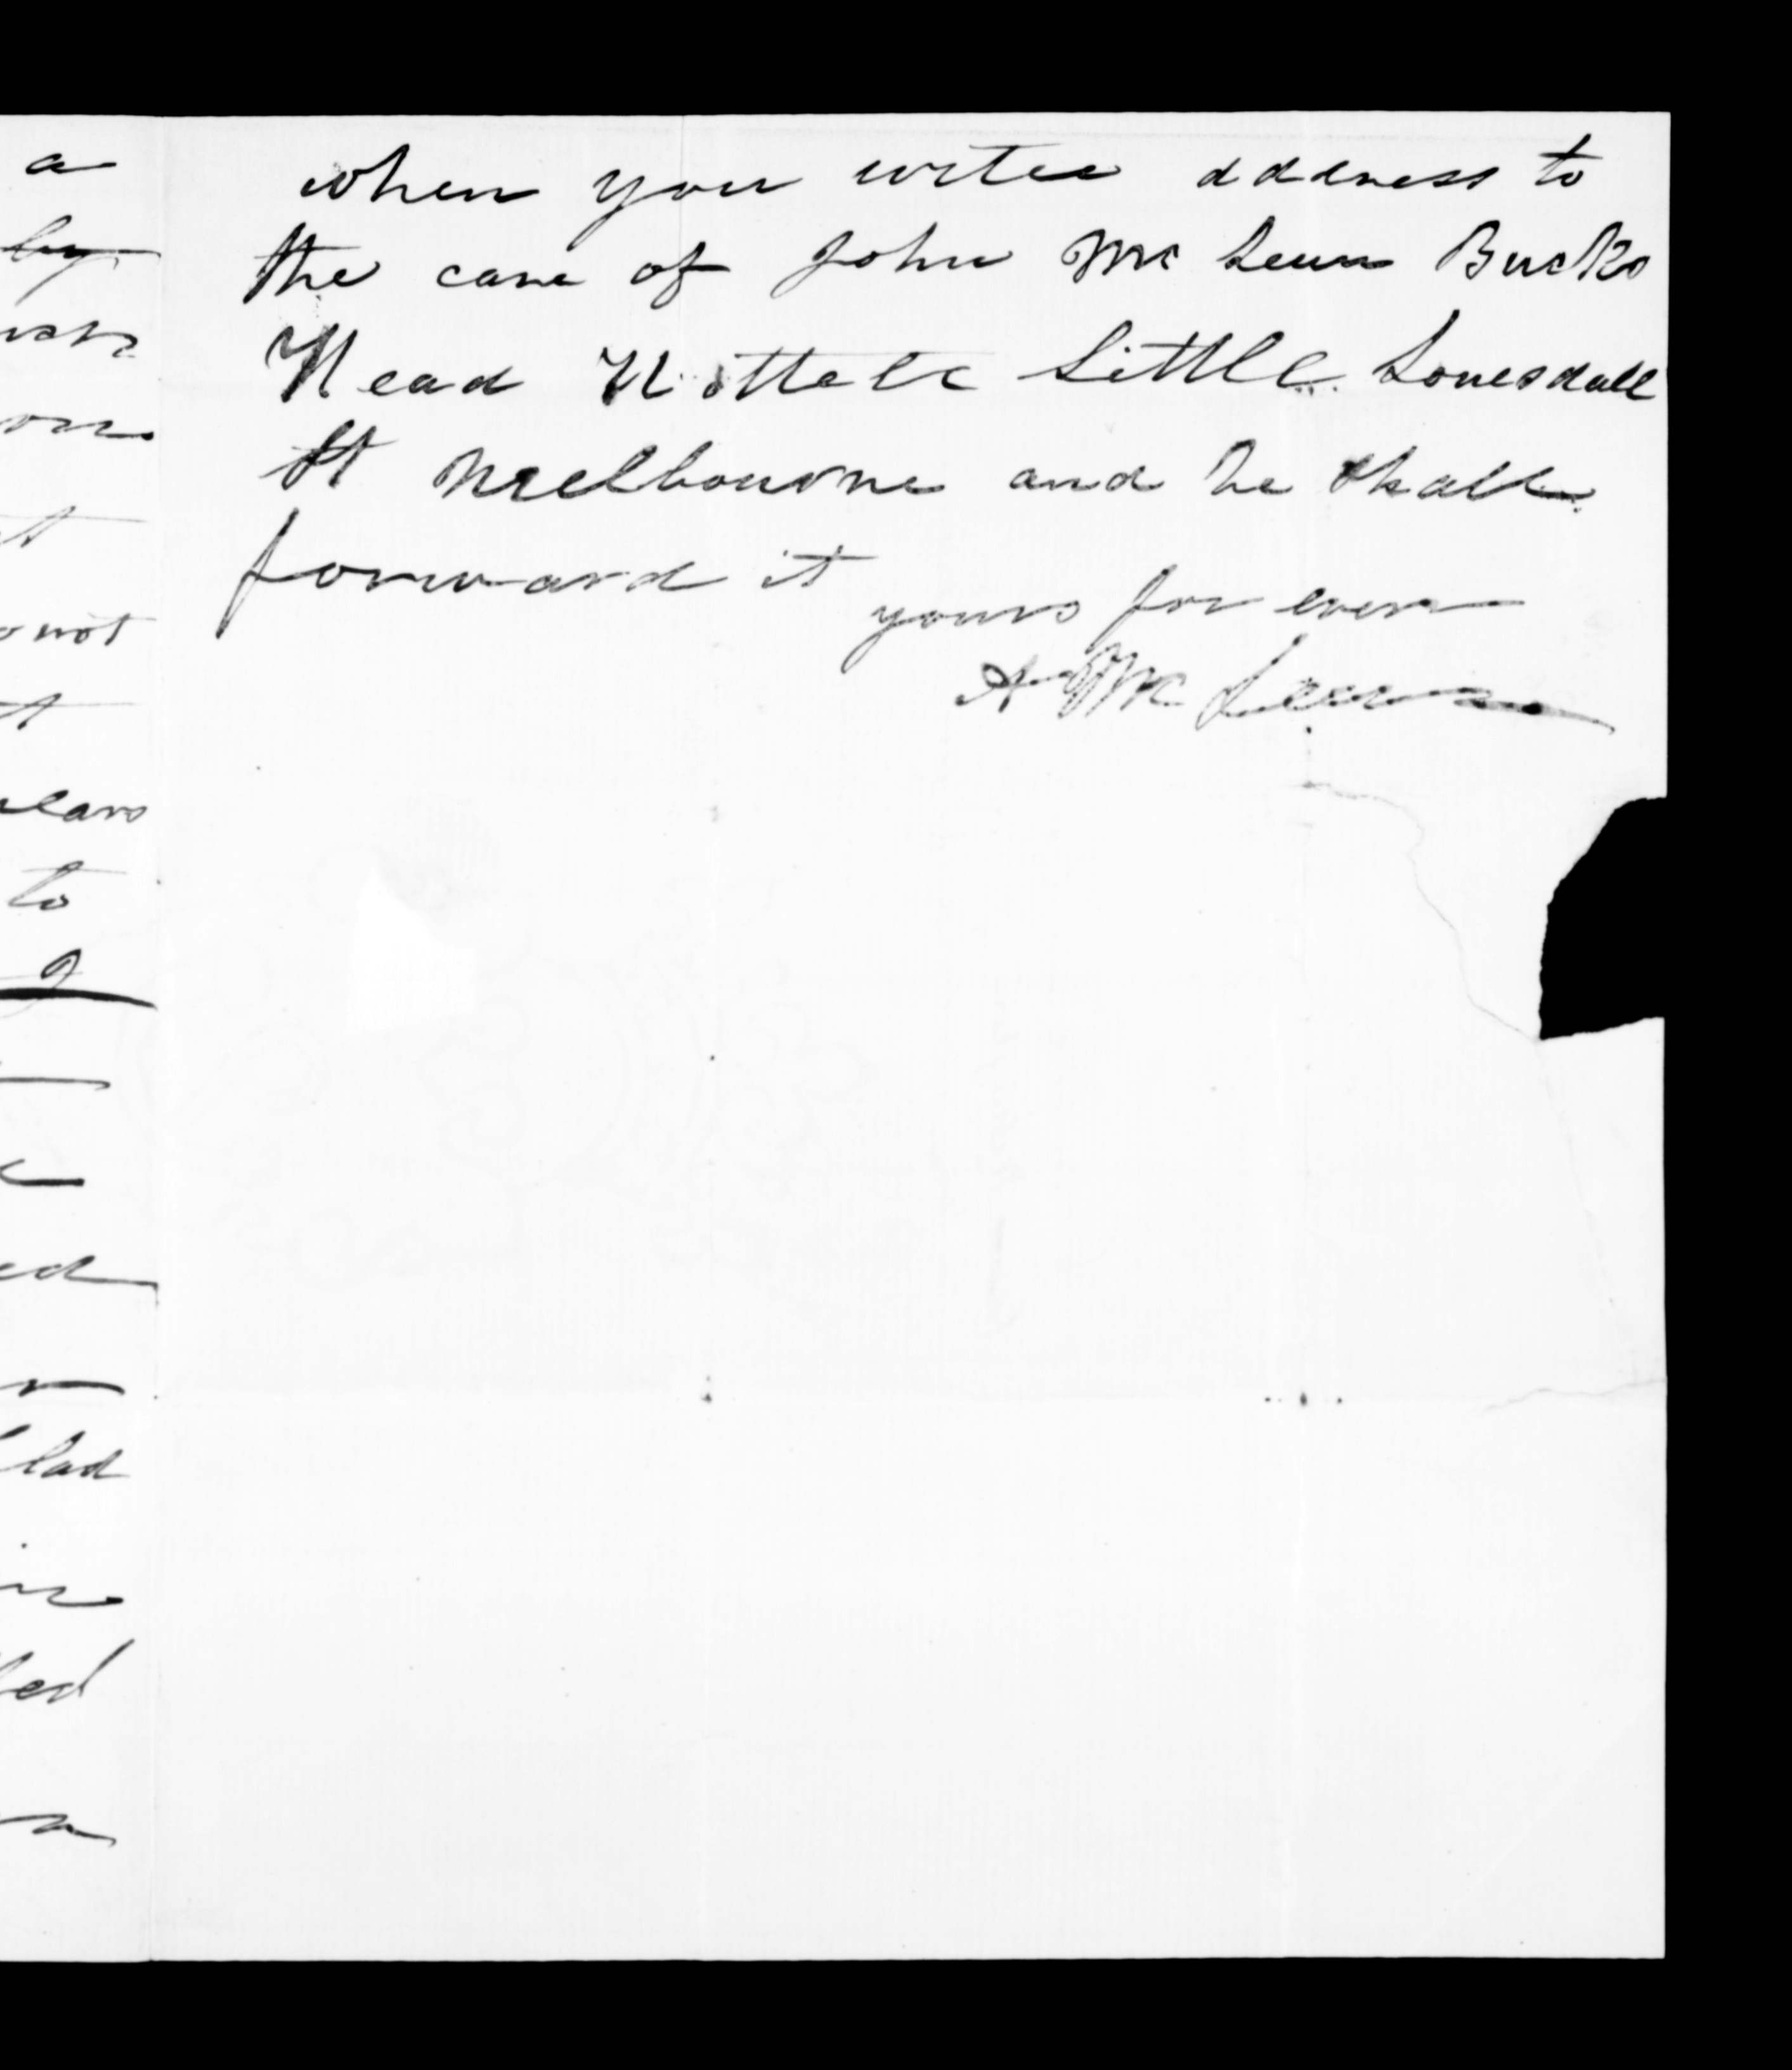 a
by
not
t
to
ed
lad
when you writee address to
the care of John Mc Lean Bucks
Head Hottele Little Lonesdall
St Mrelbourne and he shall
forward it
yours for ever
A Mc Lean